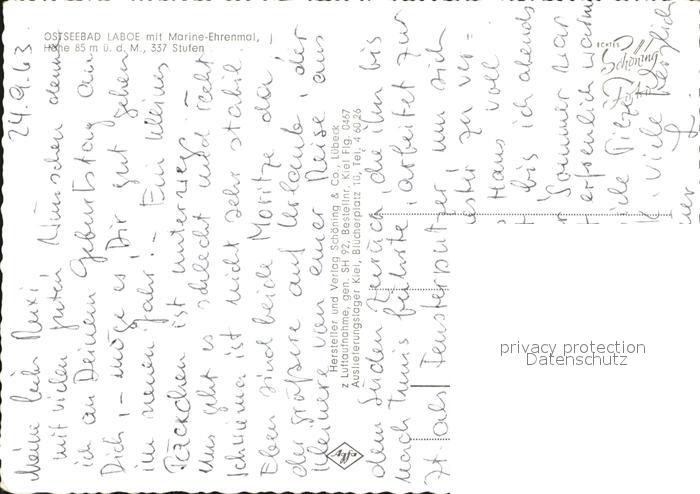 OSTSEEBAD LABOE mit Marine-Ehrenmal,
Höhe 85 m ü. d. M., 337 Stufen
ECHTES
Schöning
Foto
Hersteller und Verlag Schöning & Co., Lübeck
z Luftaufnahme, gen. SH 92, Bestellnr. Kiel Flg. 0467
Auslieferungslager Kiel, Blücherplatz 10, Tel. 4 60 26
Agfa
24.9.63
Meine liebe
mit vielen guten Wünschen denke
ich an Deinen Geburtstag an
Dich, – möge es Dir gut gehen
im neuen Jahr! – Ein kleines
Päckchen ist unterwegs.
Uns geht es schlecht und recht
ist nicht sehr stabil.
Eben sind beide Moritze da,
der größere auf Urlaub, der
kleinere von einer Reise aus
dem Süden zurück, die ihn bis
nach Tunis führte, arbeitet zur
Zt. als Fensterputzer um sich
zu ver-
Haus voll
bis ich abends
Sommer war
erfreulich warm
Pilze
viele herzlich
privacy protection
Datenschutz